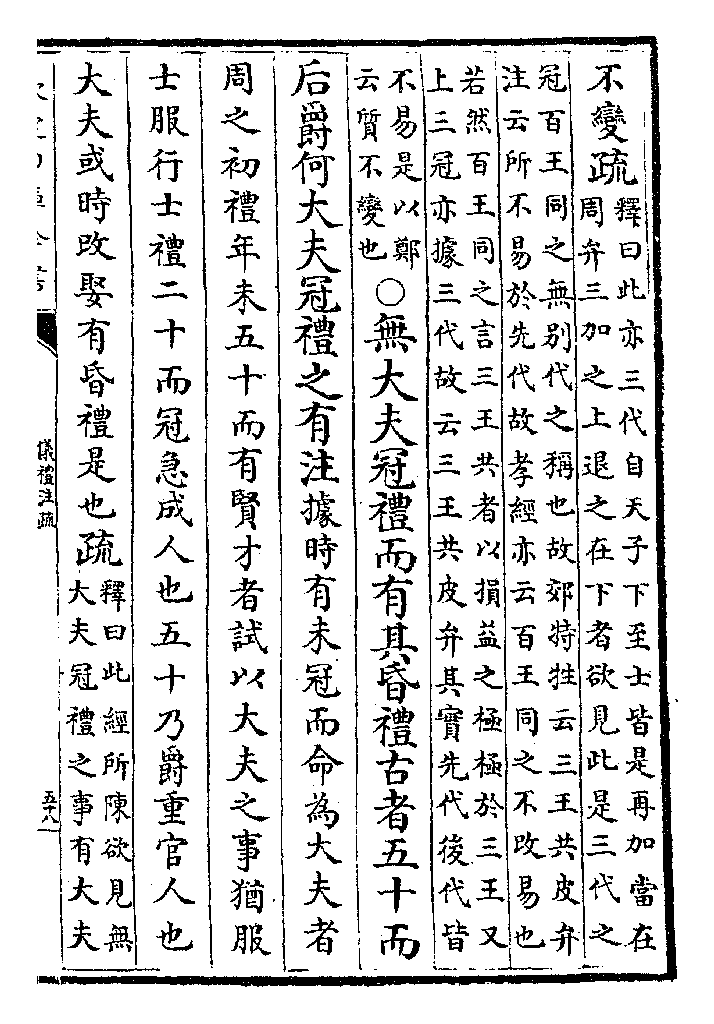 不變疏釋曰此亦三代自天子下至士皆是再加當在
周弁三加之上退之在下者欲見此是三代之
冠百王同之無別代之稱也故郊特牲云三王共皮弁
注云所不易於先代故孝經亦云百王同之不改易也
若然百王同之言三王共者以損益之極極於三王又
上三冠亦據三代故云三王共皮弁其實先代後代皆
不易是以鄭
云質不變也○無大夫冠禮而有其昏禮古者五十而
后爵何大夫冠禮之有注據時有未冠而命為大夫者
周之初禮年未五十而有賢才者試以大夫之事猶服
士服行士禮二十而冠急成人也五十乃爵重官人也
大夫或時改娶有昏禮是也疏釋曰此經所陳欲見無
大夫冠禮之事有大夫
儀禮注疏
五十八